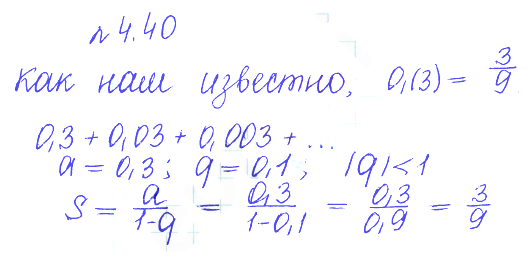 № 4.40
Как нам известно, 0,(3) = 3/9
0,3 + 0,03 + 0,003 + ...
a = 0,3; q = 0,1; |q| < 1
S = a/(1-q) = 0,3/(1-0,1) = 0,3/0,9 = 3/9